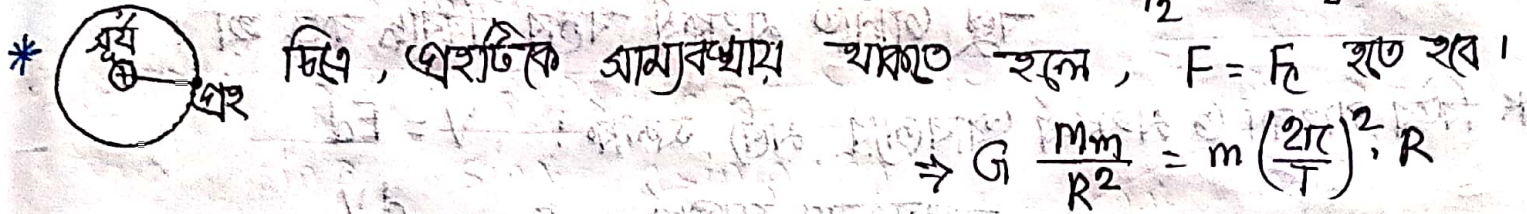 2
* সূর্য গ্রহ চিত্রে, গ্রহটিকে সাম্যবস্থায় থাকতে হলে, F = Fc হতে হবে।
⇒ G Mm/R² = m (2π/T)². R